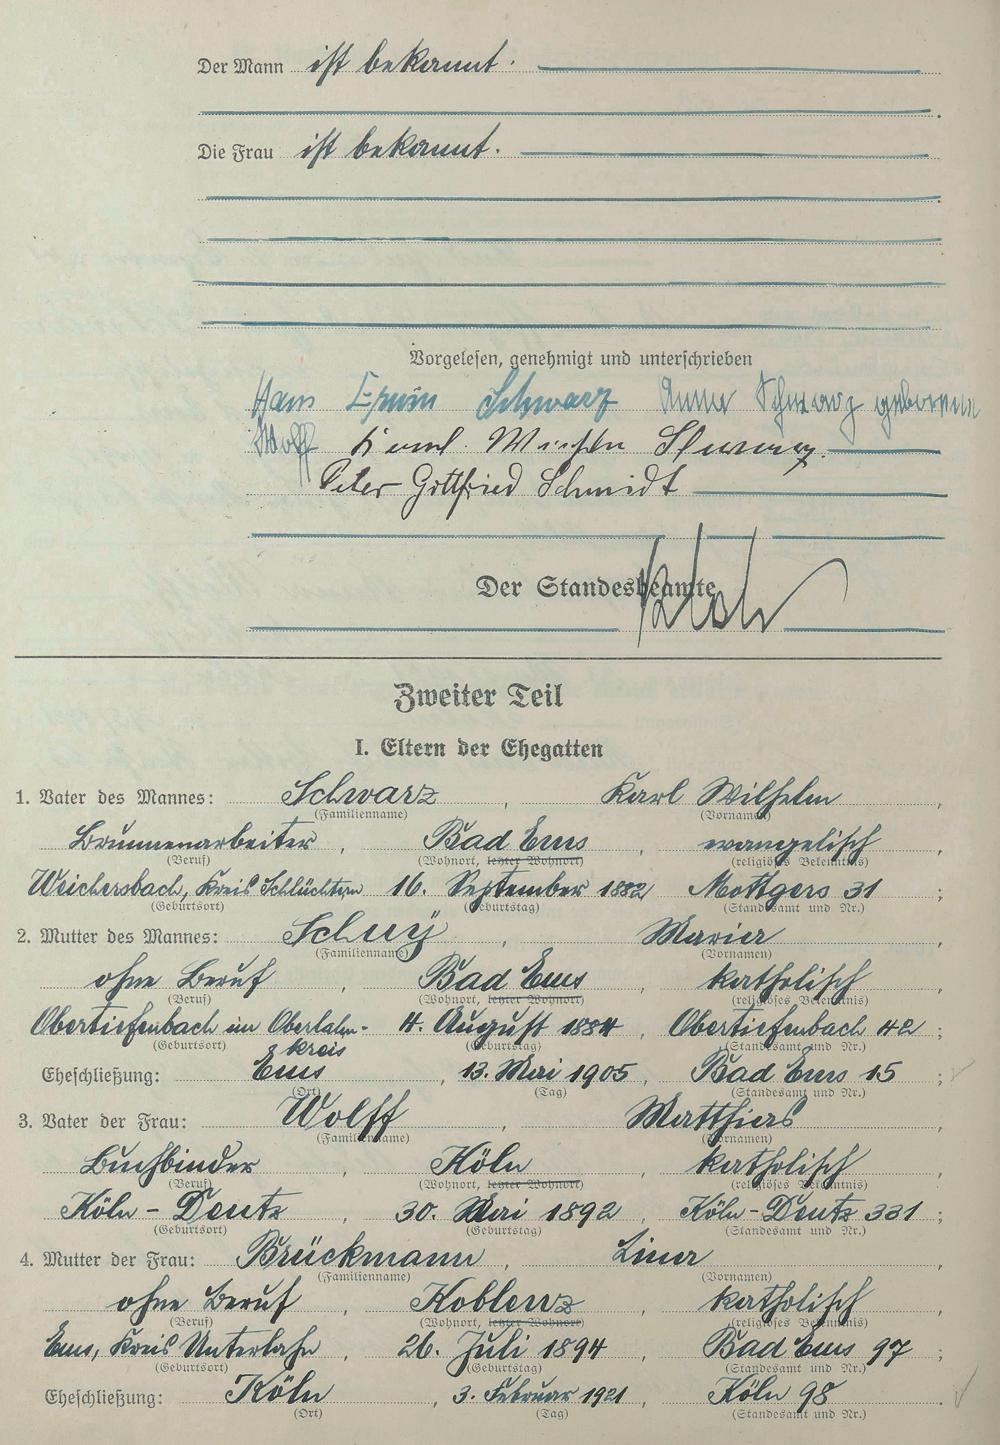 Der Mann ist bekannt.
Die Frau ist bekannt.
Vorgelesen, genehmigt und unterschrieben
Hans Erwin Schwarz Anna Schwarz geborene
Wolff Karl Wilhelm Schwarz.
Peter Gottfried Schmidt
Der Standesbeamte
Zweiter Teil
I. Eltern der Ehegatten
1. Vater des Mannes: Schwarz, Karl Wilhelm,
(Familienname) (Vornamen)
Brunnenarbeiter, Bad Ems, evangelisch
(Beruf) (Wohnort, letzter Wohnort) (religiöses Bekenntnis)
Weichersbach, Kreis Schlüchtern 16. September 1882, Mottgers 31;
(Geburtsort) (Geburtstag) (Standesamt und Nr.)
2. Mutter des Mannes: Schuÿ, Maria,
(Familienname) (Vornamen)
ohne Beruf, Bad Ems, katholisch
(Beruf) (Wohnort, letzter Wohnort) (religiöses Bekenntnis)
Obertiefenbach im Oberlahn- 4. August 1884, Obertiefenbach 42;
(Geburtsort) (Geburtstag) (Standesamt und Nr.)
kreis
Eheschließung: Ems, 13. Mai 1905, Bad Ems 15;
(Ort) (Tag) (Standesamt und Nr.)
3. Vater der Frau: Wolff, Matthias,
(Familienname) (Vornamen)
Buchbinder, Köln, katholisch
(Beruf) (Wohnort, letzter Wohnort) (religiöses Bekenntnis)
Köln-Deutz, 30. Mai 1892, Köln-Deutz 331;
(Geburtsort) (Geburtstag) (Standesamt und Nr.)
4. Mutter der Frau: Brückmann, Lina,
(Familienname) (Vornamen)
ohne Beruf, Koblenz, katholisch
(Beruf) (Wohnort, letzter Wohnort) (religiöses Bekenntnis)
Ems, Kreis Unterlahn, 26. Juli 1894, Bad Ems 97;
(Geburtsort) (Geburtstag) (Standesamt und Nr.)
Eheschließung: Köln, 3. Februar 1921, Köln 98.
(Ort) (Tag) (Standesamt und Nr.)